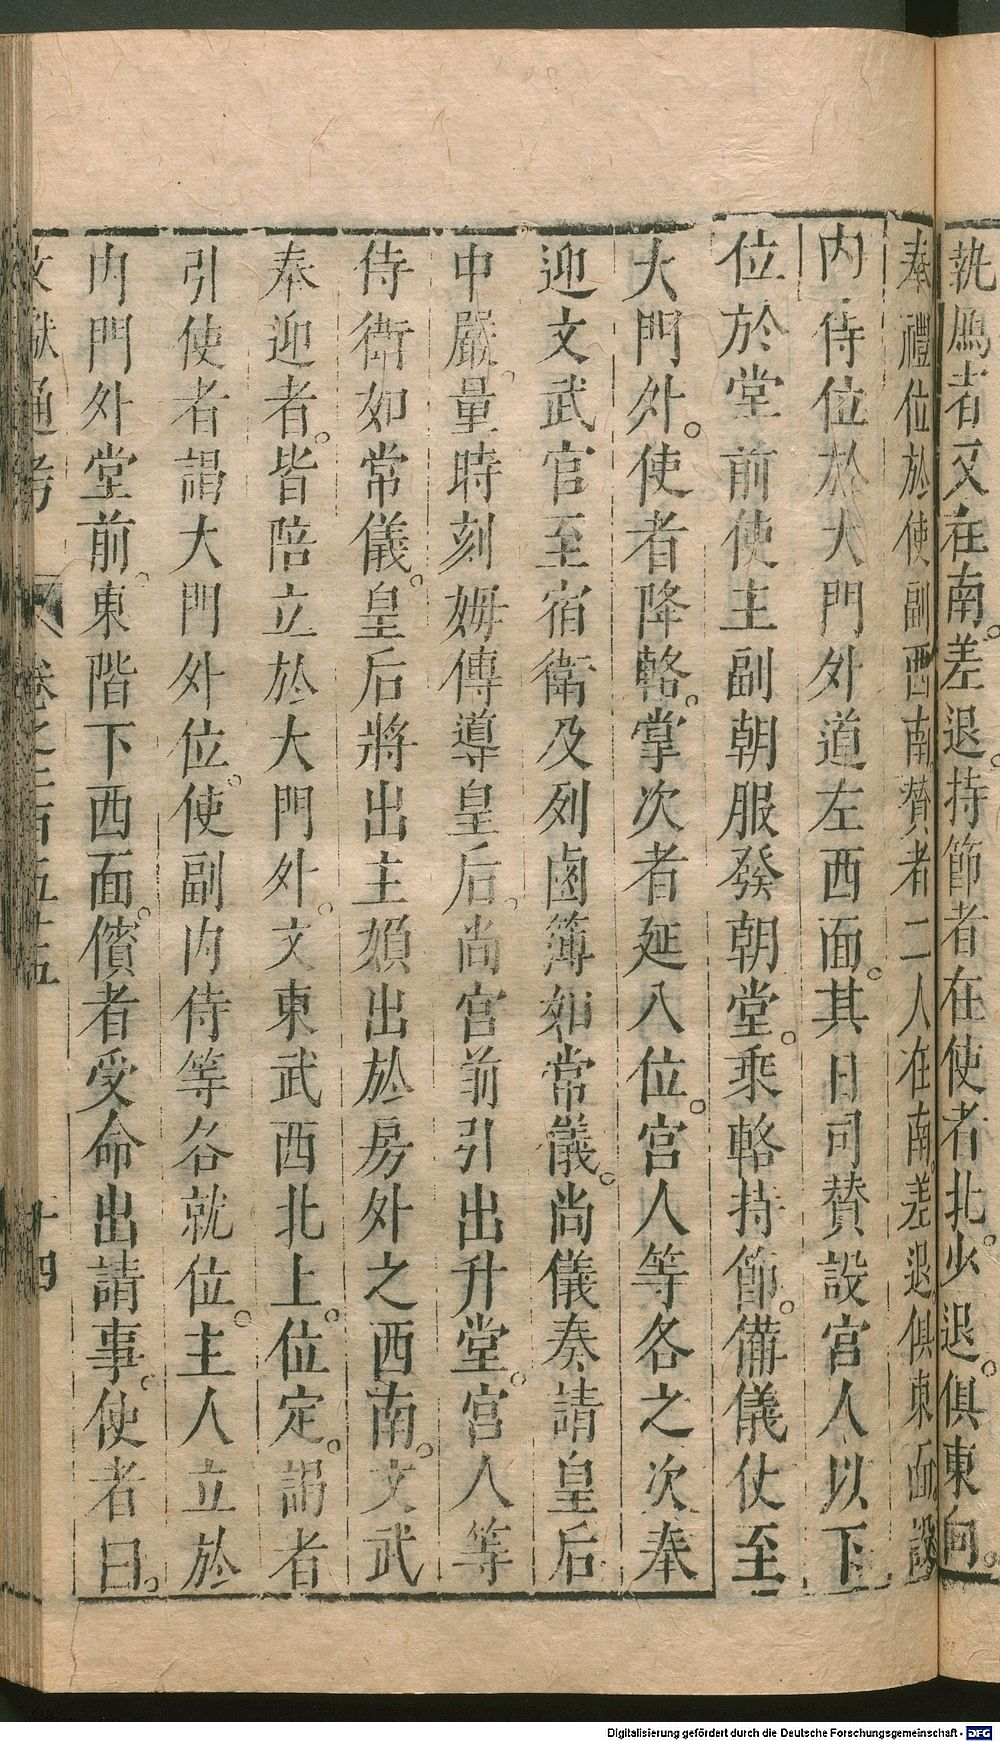 執鴈者又在南差退持節者在使者北少退俱東向
奉禮位於使副西南贊者二人在南差退俱東面設
內侍位於大門外道左西面其日司贊設宮人以下
位於堂前使主副朝服發朝堂乘輅持節備儀仗至
大門外使者降輅掌次者延入位宮人等各之次奉
迎文武官至宿衛及列鹵簿如常儀尚儀奏請皇后
中嚴量時刻姆傅導皇后尚宮前引出升堂宮人等
侍衛如常儀皇后將出主婦出於房外之西南文武
奉迎者皆陪立於大門外文東武西北上位定謁者
引使者謁大門外位使副內侍等各就位主人立於
內門外堂前東階下西面儐者受命出請事使者曰
文獻通考 卷之二百五十五 十四
Digitalisierung gefördert durch die Deutsche Forschungsgemeinschaft - DFG